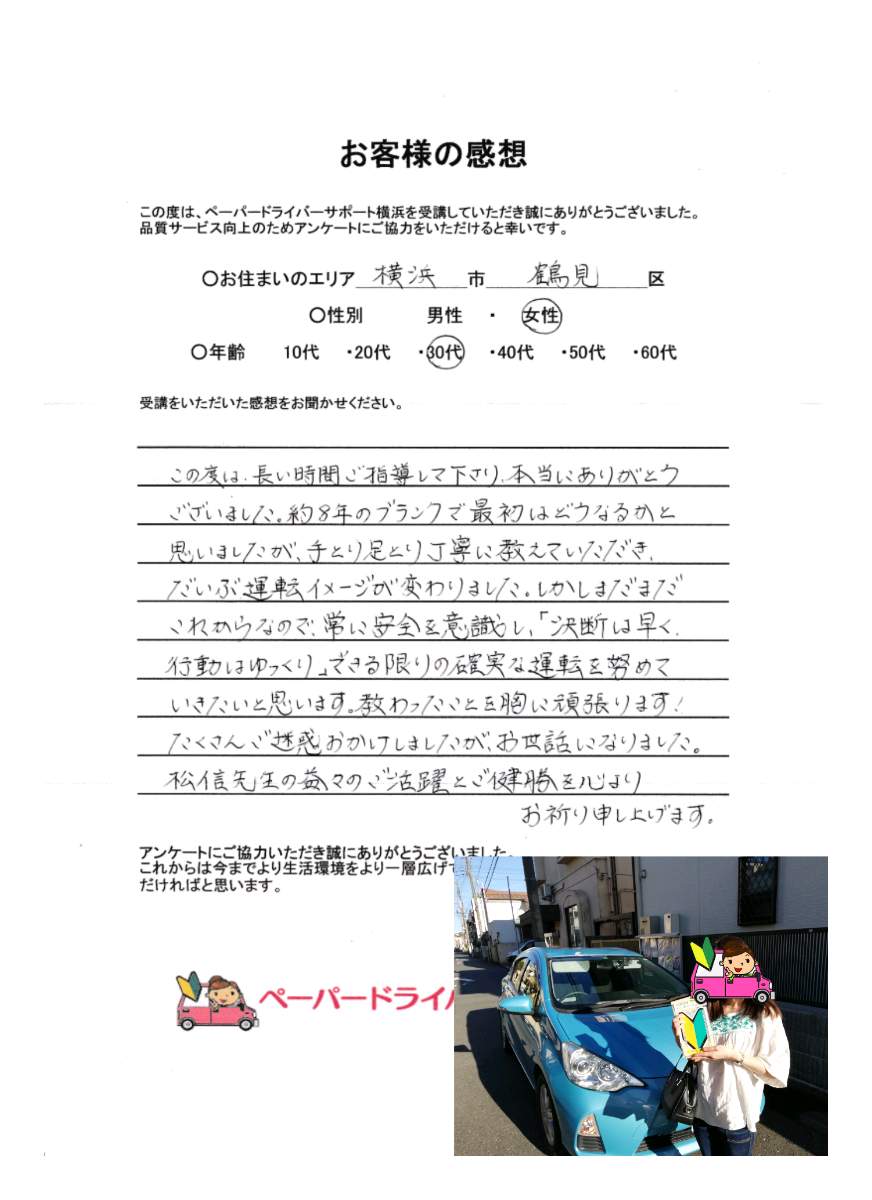 お客様の感想
この度は、ペーパードライバーサポート横浜を受講していただき誠にありがとうございました。
品質サービス向上のためアンケートにご協力をいただけると幸いです。
〇お住まいのエリア 横浜 市 鶴見 区
〇性別 男性 ・ 女性
〇年齢 10代 ・20代 ・30代 ・40代 ・50代 ・60代
受講をいただいた感想をお聞かせください。
この度は、長い時間ご指導して下さり、本当にありがとう
ございました。約8年のブランクで最初はどうなるかと
思いましたが、手とり足とり丁寧に教えていただき、
だいぶ運転イメージが変わりました。しかしまだまだ
これからなので、常に安全を意識し、「決断は早く、
行動はゆっくり」できる限りの確実な運転を努めて
いきたいと思います。教わったことを胸に頑張ります!
たくさんご迷惑おかけしましたが、お世話になりました。
松信先生の益々のご活躍とご健勝を心より
お祈り申し上げます。
アンケートにご協力いただき誠にありがとうございました。
これからは今までより生活環境をより一層広げて
だければと思います。
ペーパードライバ